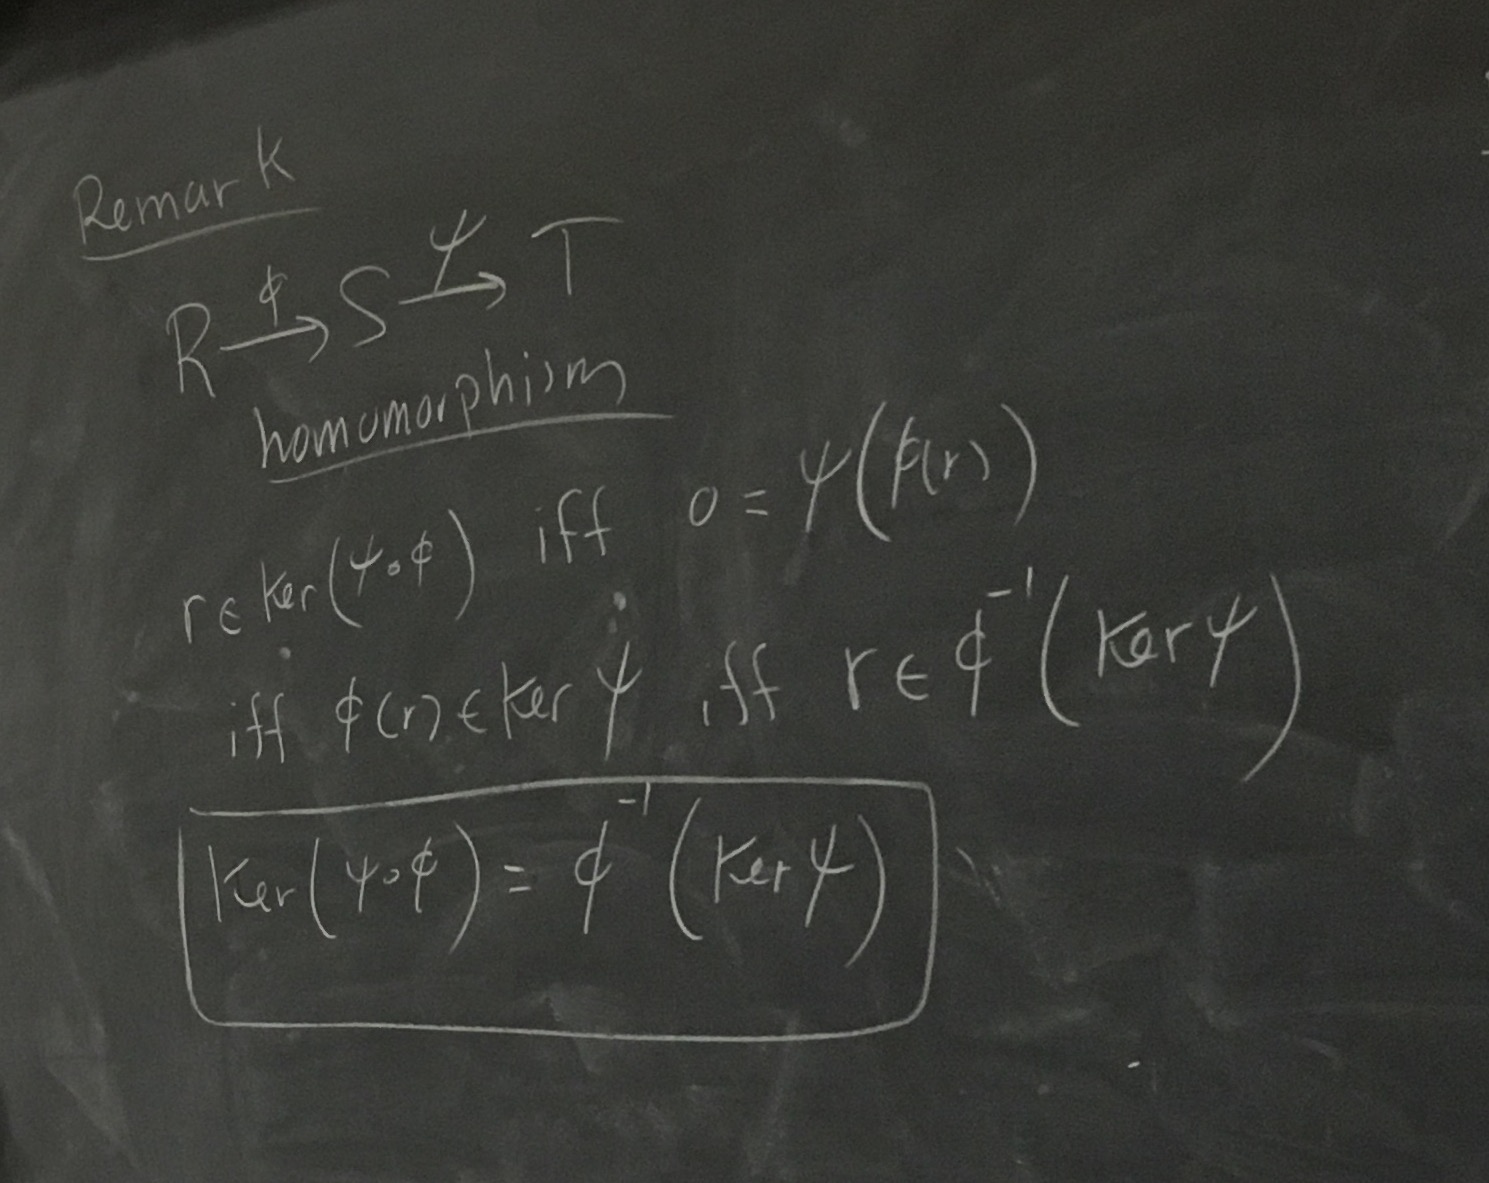 Remark
R →^ϕ S →^ψ T
homomorphism
r ∈ ker(ψ∘ϕ) iff 0 = ψ(ϕ(r))
iff ϕ(r) ∈ ker ψ iff r ∈ ϕ⁻¹(ker ψ)
ker(ψ∘ϕ) = ϕ⁻¹(ker ψ)